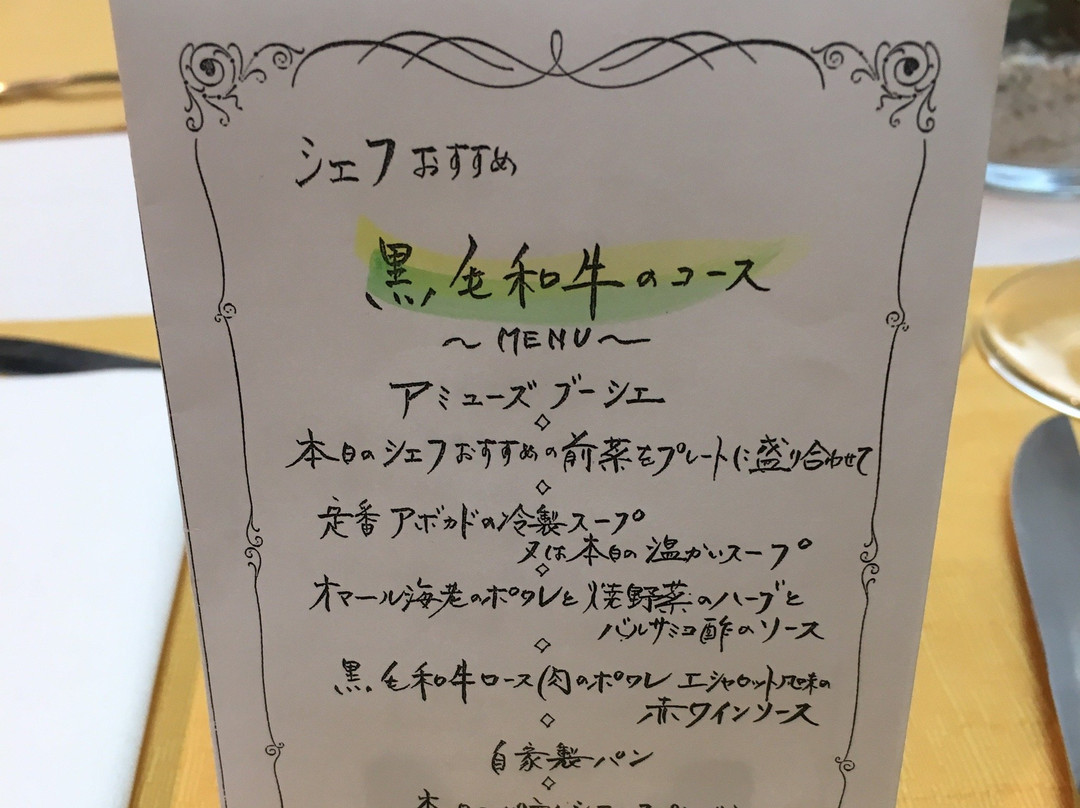 シェフおすすめ
黒毛和牛のコース
～MENU～
アミューズ ブーシエ
本日のシェフおすすめの前菜をプレートに盛り合わせて
定番 アボカドの冷製スープ
又は本日の温かいスープ
オマール海老のポワレと焼野菜のハーブと
バルサミコ酢のソース
黒毛和牛ロース肉のポワレ エシャロット風味の
赤ワインソース
自家製パン